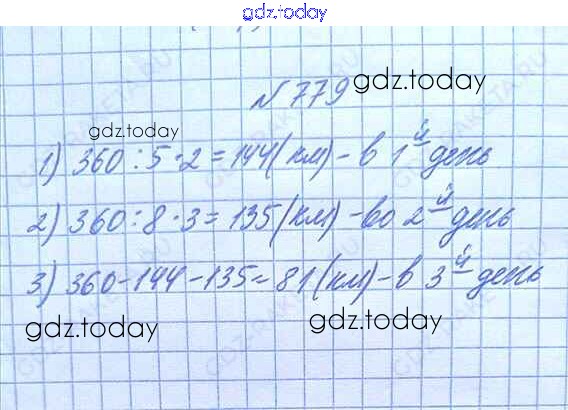 gdz.today
№ 779
gdz.today
gdz.today
1) 360 : 5 · 2 = 144 (км) - в 1й день
2) 360 : 8 · 3 = 135 (км) - во 2й день
3) 360 - 144 - 135 = 81 (км) - в 3й день
gdz.today
gdz.today